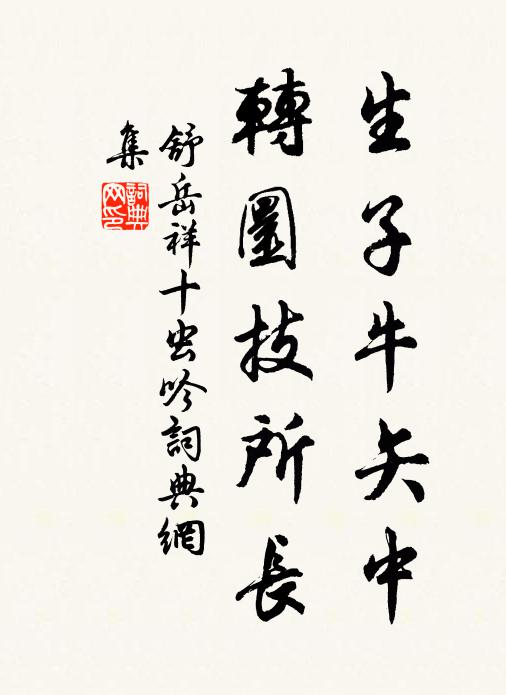 生子牛矢中
轉圜技所長
舒岳祥十虫吟詞典網
集
詞典网印